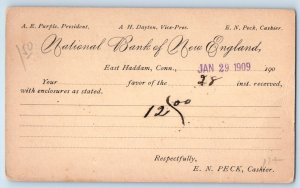 A. E. Purple, President. A. H. Dayton, Vice-Pres. E. N. Peck, Cashier.
National Bank of New England,
East Haddam, Conn., JAN 29 1909 190
Your favor of the 28 inst. received,
with enclosures as stated.
12 00
Respectfully,
E. N. PECK, Cashier.